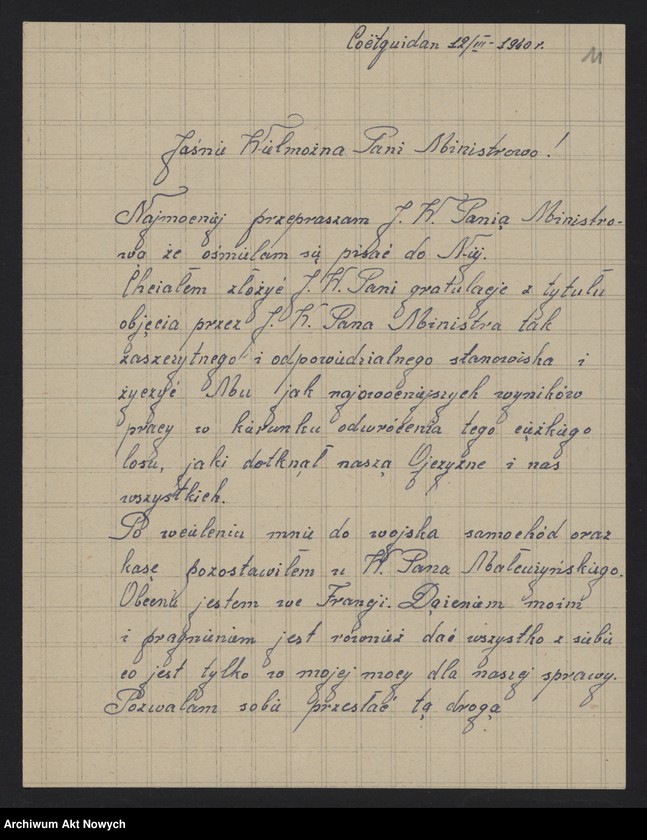 Coëtquidan 12/III - 1940 r.
11
Jaśnie Wielmożna Pani Ministrowo!
Najmocniej przepraszam J. W. Panią Ministro-
wą że ośmielam się pisać do Niej.
Chciałem złożyć J. W. Pani gratulacje z tytułu
objęcia przez J. W. Pana Ministra tak
zaszczytnego i odpowiedzialnego stanowiska i
życzyć Mu jak najowocniejszych wyników
pracy w kierunku odwrócenia tego ciężkiego
losu, jaki dotknął naszą Ojczyznę i nas
wszystkich.
Po wcieleniu mnie do wojska samochód oraz
kasę pozostawiłem u W. Pana Małczyńskiego.
Obecnie jestem we Francji. Dążeniem moim
i pragnieniem jest również dać wszystko z siebie
co jest tylko w mojej mocy dla naszej sprawy.
Pozwalam sobie przesłać tą drogą
Archiwum Akt Nowych